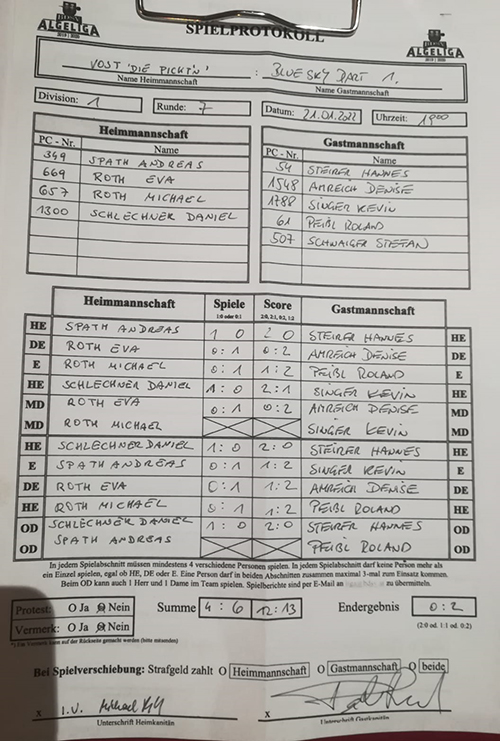 ALGELIGA
SPIELPROTOKOLL
ALGELIGA
VOST 'DIE PICKT'N' : BLUE SKY DART 1.
Name Heimmannschaft Name Gastmannschaft
Division: 1 Runde: 7 Datum: 21.01.2022 Uhrzeit: 19 00
Heimmannschaft
PC - Nr. Name
349 SPATH ANDREAS
669 ROTH EVA
657 ROTH MICHAEL
1300 SCHLECHNER DANIEL
Gastmannschaft
PC - Nr. Name
54 STEIRER HANNES
1548 AMREICH DENISE
1788 SINGER KEVIN
61 PEIBL ROLAND
507 SCHWAIGER STEFAN
Heimmannschaft Spiele Score Gastmannschaft
1:0 oder 0:1 2:0, 2:1, 0:2, 1:2
HE SPATH ANDREAS 1 0 2 0 STEIRER HANNES HE
DE ROTH EVA 0:1 0:2 AMREICH DENISE DE
E ROTH MICHAEL 0:1 1:2 PEIBL ROLAND E
HE SCHLECHNER DANIEL 1:0 2:1 SINGER KEVIN HE
MD ROTH EVA 0:1 0:2 AMREICH DENISE MD
MD ROTH MICHAEL SINGER KEVIN MD
HE SCHLECHNER DANIEL 1:0 2:0 STEIRER HANNES HE
E SPATH ANDREAS 0:1 1:2 SINGER KEVIN E
DE ROTH EVA 0:1 1:2 AMREICH DENISE DE
HE ROTH MICHAEL 0:1 1:2 PEIBL ROLAND HE
OD SCHLECHNER DANIEL 1:0 2:0 STEIRER HANNES OD
OD SPATH ANDREAS PEIBL ROLAND OD
In jedem Spielabschnitt müssen mindestens 4 verschiedene Personen spielen. In jedem Spielabschnitt darf keine Person mehr als
ein Einzel spielen, egal ob HE, DE oder E. Eine Person darf in beiden Abschnitten zusammen maximal 3-mal zum Einsatz kommen.
Beim OD kann auch 1 Herr und 1 Dame im Team spielen. Spielberichte sind per E-Mail an zu übermitteln.
Protest: O Ja O Nein Summe 4:6 12:13 Endergebnis 0:2
Vermerk: O Ja O Nein (2:0 od. 1:1 od. 0:2)
*) Ein Vermerk kann auf der Rückseite gemacht werden (bitte mitsenden)
Bei Spielverschiebung: Strafgeld zahlt O Heimmannschaft O Gastmannschaft O beide
x I.V. x
Unterschrift Heimkapitän Unterschrift Gastkapitän